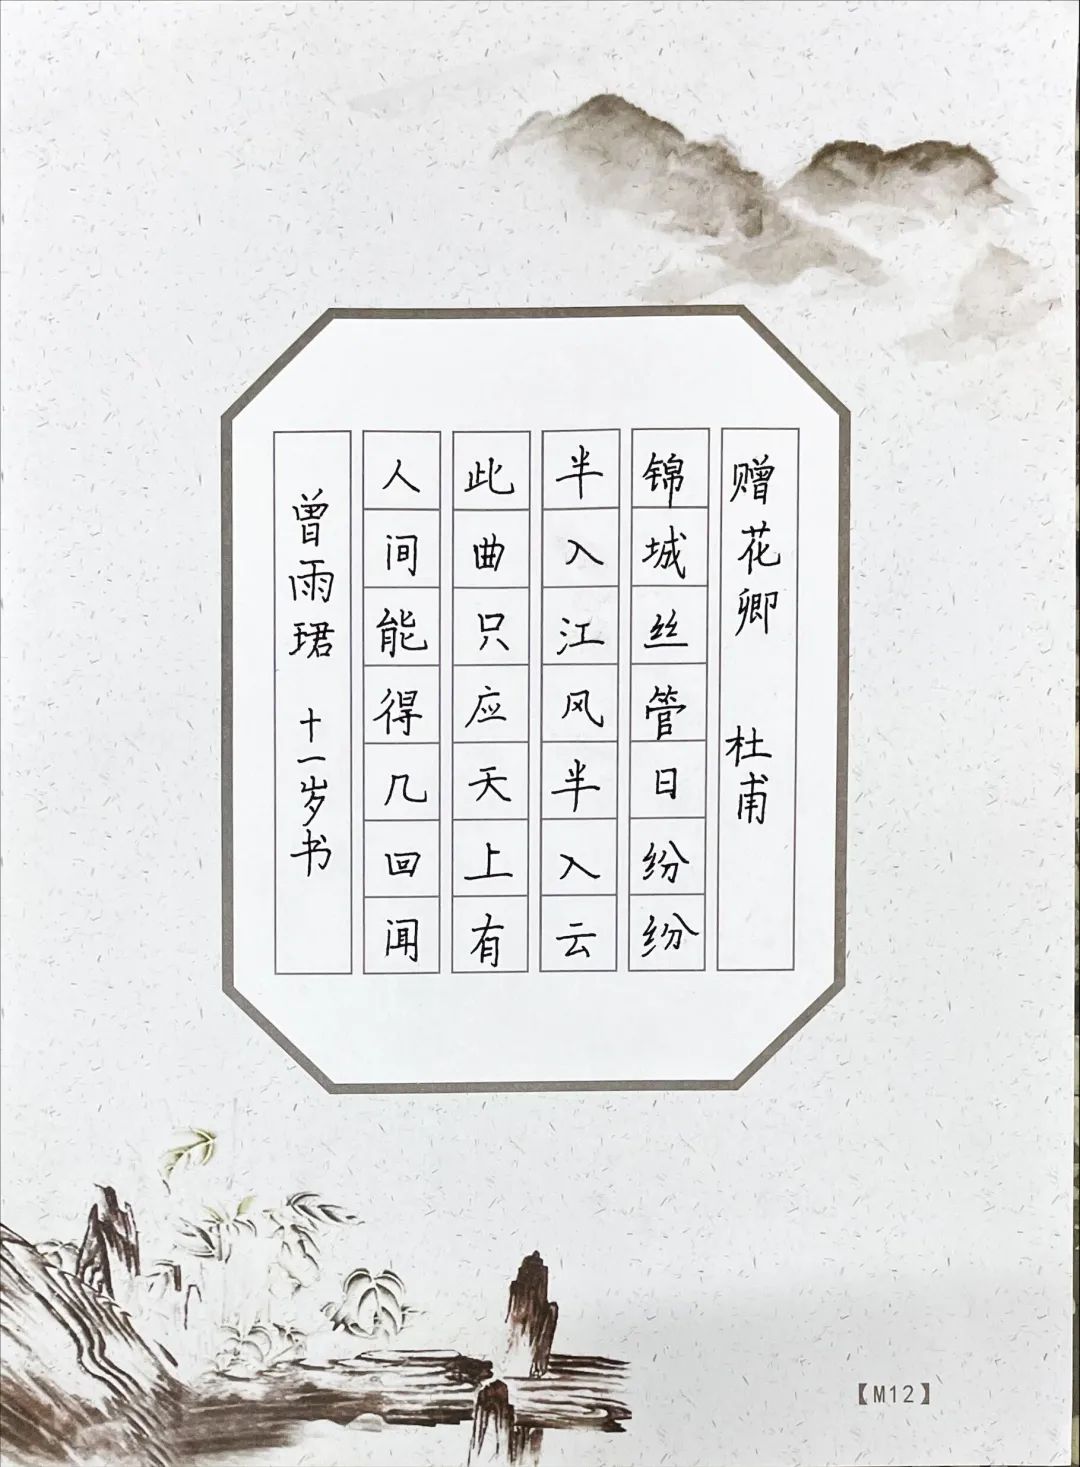 赠花卿 杜甫
锦城丝管日纷纷
半入江风半入云
此曲只应天上有
人间能得几回闻
曾雨珺 十一岁书
【M12】